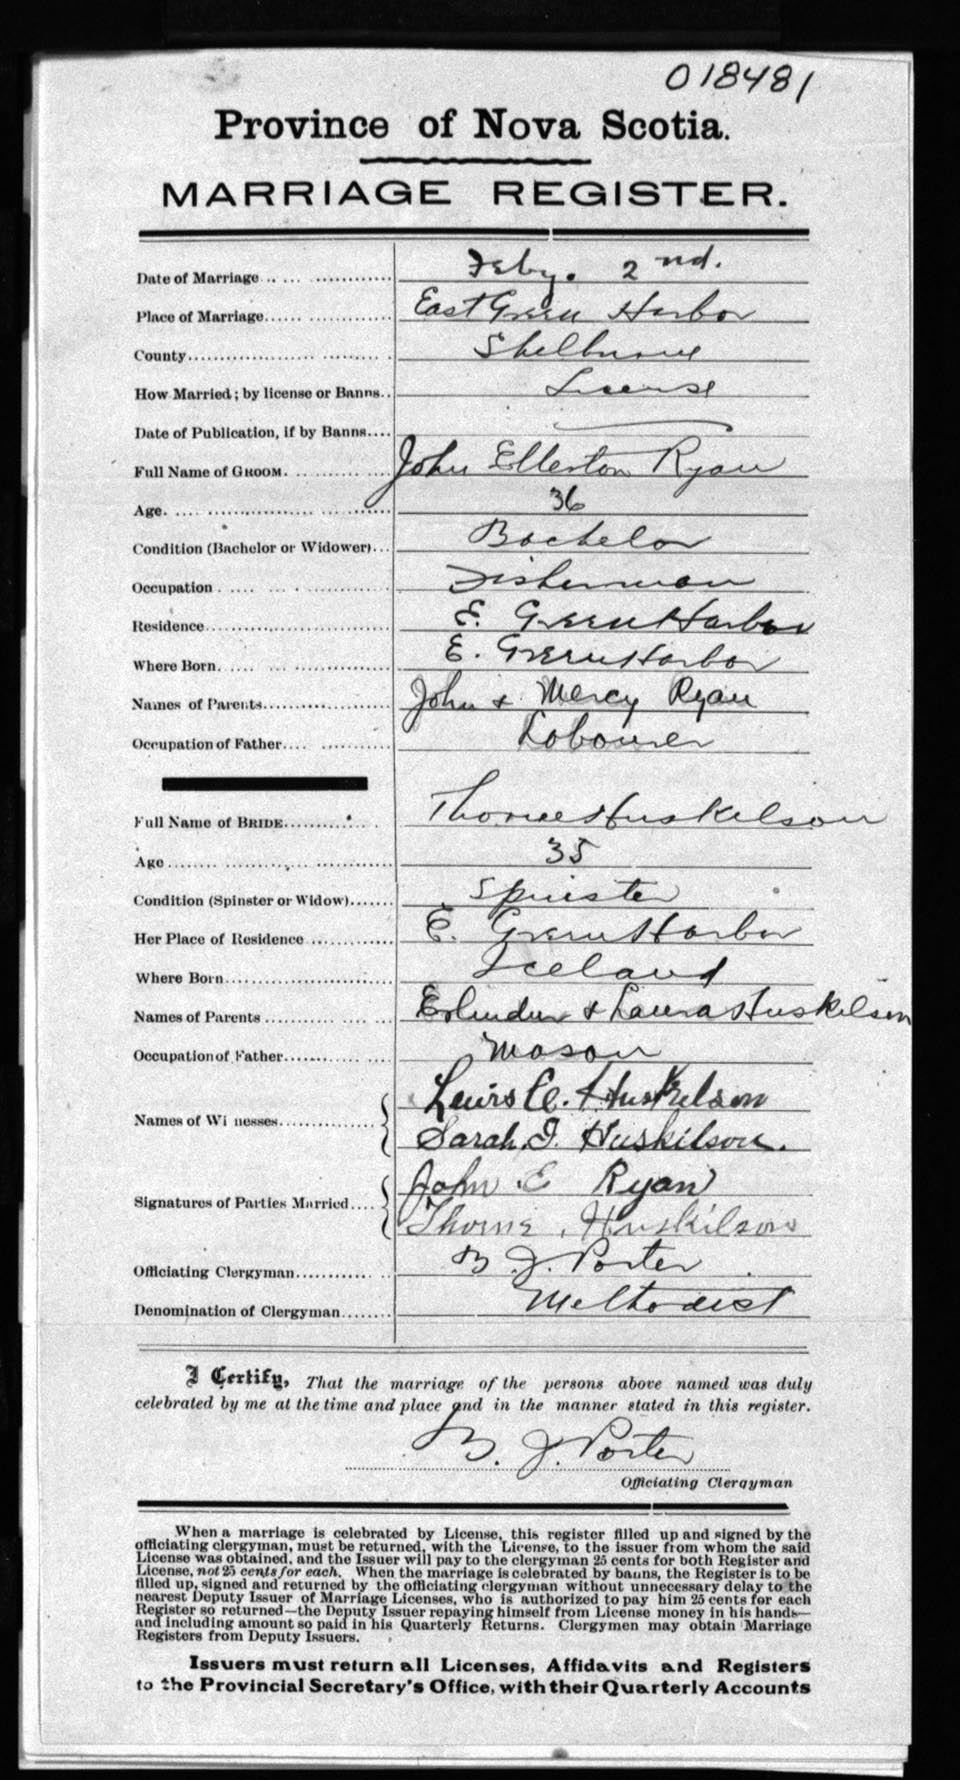 018481
Province of Nova Scotia.
MARRIAGE REGISTER.
Date of Marriage Feby. 2nd.
Place of Marriage East Green Harbor
County Shelburne
How Married; by license or Banns.. License
Date of Publication, if by Banns....
Full Name of GROOM. John Ellerton Ryan
Age. 36
Condition (Bachelor or Widower)... Bachelor
Occupation Fisherman
Residence E. Green Harbor
Where Born. E. Green Harbor
Names of Parents John & Mercy Ryan
Occupation of Father Labourer
Full Name of BRIDE Thorne Huskilson
Age 35
Condition (Spinster or Widow) Spinster
Her Place of Residence E. Green Harbor
Where Born Iceland
Names of Parents Erlindur & Laura Huskilson
Occupation of Father Mason
Names of Witnesses Lewis A. Huskilson
Sarah. I. Huskilson.
Signatures of Parties Married John E Ryan
Thorne. Huskilson
Officiating Clergyman B. J. Porter
Denomination of Clergyman Methodist
I Certify, That the marriage of the persons above named was duly
celebrated by me at the time and place and in the manner stated in this register.
B. J. Porter
Officiating Clergyman
When a marriage is celebrated by License, this register filled up and signed by the
officiating clergyman, must be returned, with the License, to the issuer from whom the said
License was obtained, and the Issuer will pay to the clergyman 25 cents for both Register and
License, not 25 cents for each. When the marriage is celebrated by banns, the Register is to be
filled up, signed and returned by the officiating clergyman without unnecessary delay to the
nearest Deputy Issuer of Marriage Licenses, who is authorized to pay him 25 cents for each
Register so returned—the Deputy Issuer repaying himself from License money in his hands—
and including amount so paid in his Quarterly Returns. Clergymen may obtain Marriage
Registers from Deputy Issuers.
Issuers must return all Licenses, Affidavits and Registers
to the Provincial Secretary's Office, with their Quarterly Accounts